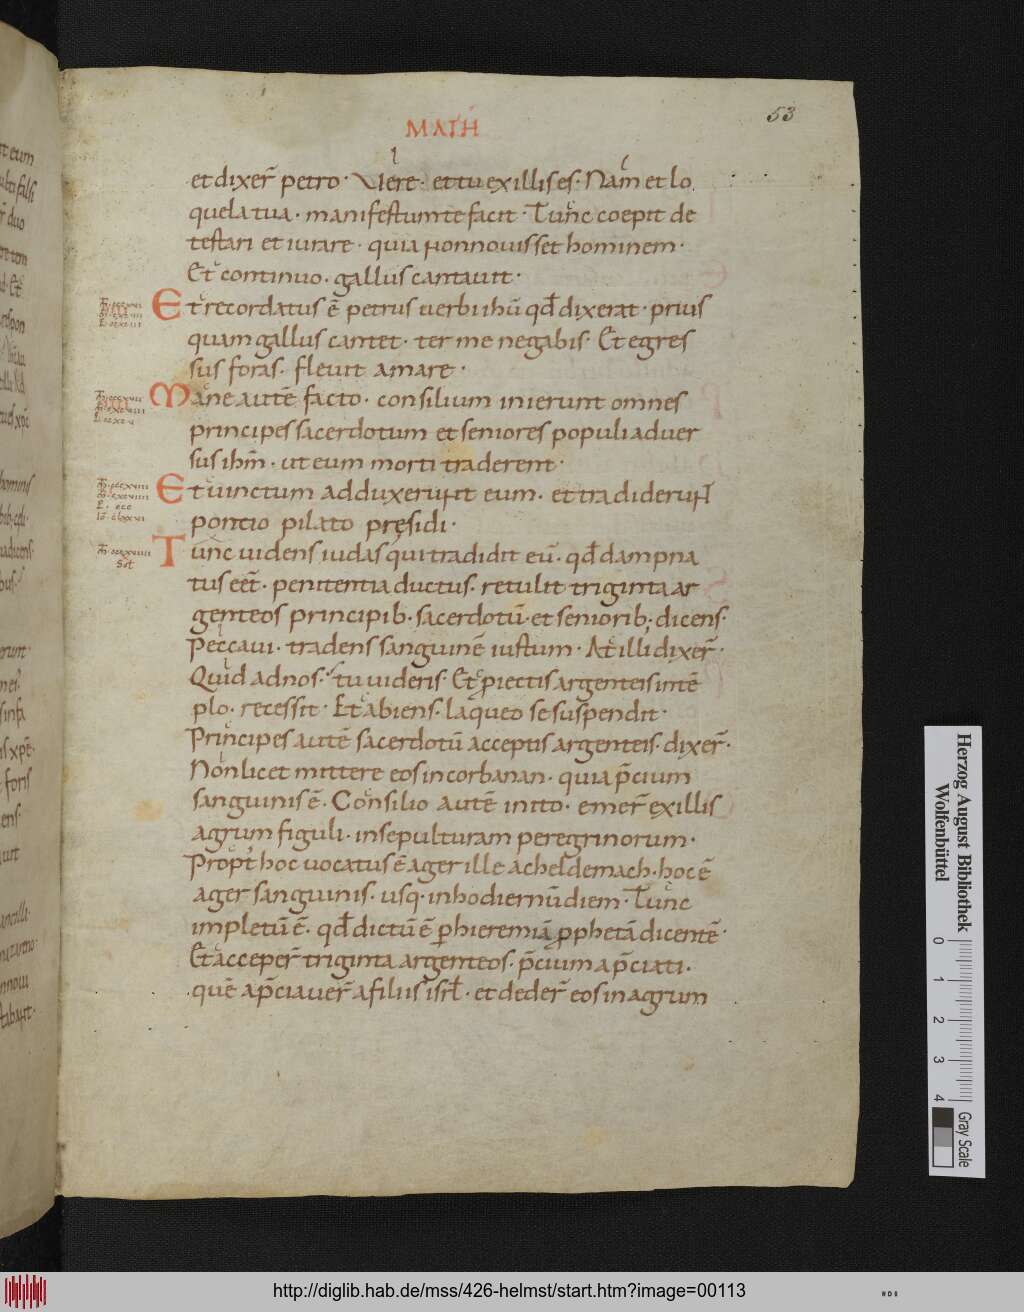 MATH
53
et dixer̄ petro · Vere · et tu ex illis es · Nam et lo
quela tua · manifestum te facit · Tunc coepit de
testari et iurare · quia non novisset hominem ·
Et continuo · gallus cantavit ·
Et recordatus ē petrus verbi ihū qđ dixerat · prius
quam gallus cantet · ter me negabis · Et egres
sus foras · flevit amare ·
Mane autē facto · consilium inierunt omnes
principes sacerdotum et seniores populi adver
sus ihm̄ · ut eum morti traderent ·
Et vinctum adduxerunt eum · et tradiderunt
pontio pilato pręsidi ·
Tunc videns iudas qui tradidit eū · qđ dampna
tus eēt · penitentia ductus · retulit triginta ar
genteos principib · sacerdotū · et seniorib; dicens ·
Peccavi · tradens sanguinē iustum · At illi dixer̄ ·
Quid ad nos · tu videris · Et ꝓiectis argenteis in tē
plo · recessit · Et abiens · laqueo se suspendit ·
Principes autē sacerdotū acceptis argenteis · dixer̄ ·
Non licet mittere eos in corbanan · quia p̄cium
sanguinis ē · Consilio autē inito · emer̄ ex illis
agrum figuli · in sepulturam peregrinorum ·
Propt̄ hoc vocatus ē ager ille acheldemach · hoc ē
ager sanguinis · usq · in hodiernū diem · Tunc
impletū ē · qđ dictū ē ꝑ hieremiā ꝓphetā dicentē ·
Et acceper̄ triginta argenteos · p̄cium ap̄ciati ·
quē ap̄ciaver̄ a filiis isrł · et deder̄ eos in agrum
Herzog August Bibliothek
Wolfenbüttel
0 1 2 3 4
Gray Scale
http://diglib.hab.de/mss/426-helmst/start.htm?image=00113